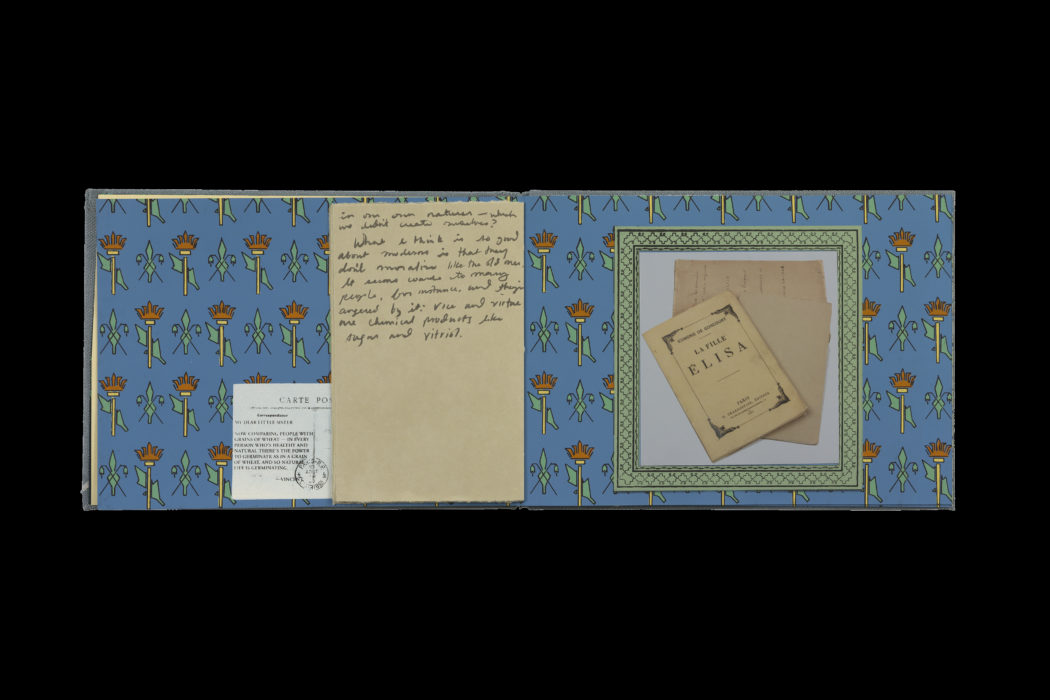 in our own natures — which
we didn't create ourselves?
What I think is so good
about moderns is that they
don't moralise like the old ones.
It seems coarse to many
people, for instance, and they're
angered by it: vice and virtue
are chemical products like
sugar and vitriol.
CARTE POS
Correspondance
MY DEAR LITTLE SISTER
NOW COMPARING PEOPLE WITH
GRAINS OF WHEAT — IN EVERY
PERSON WHO'S HEALTHY AND
NATURAL THERE'S THE POWER
TO GERMINATE AS IN A GRAIN
OF WHEAT. AND SO NATURAL
LIFE IS GERMINATING.
—VINCENT
EDMOND DE GONCOURT
LA FILLE
ELISA
PARIS
G. CHARPENTIER, ÉDITEUR